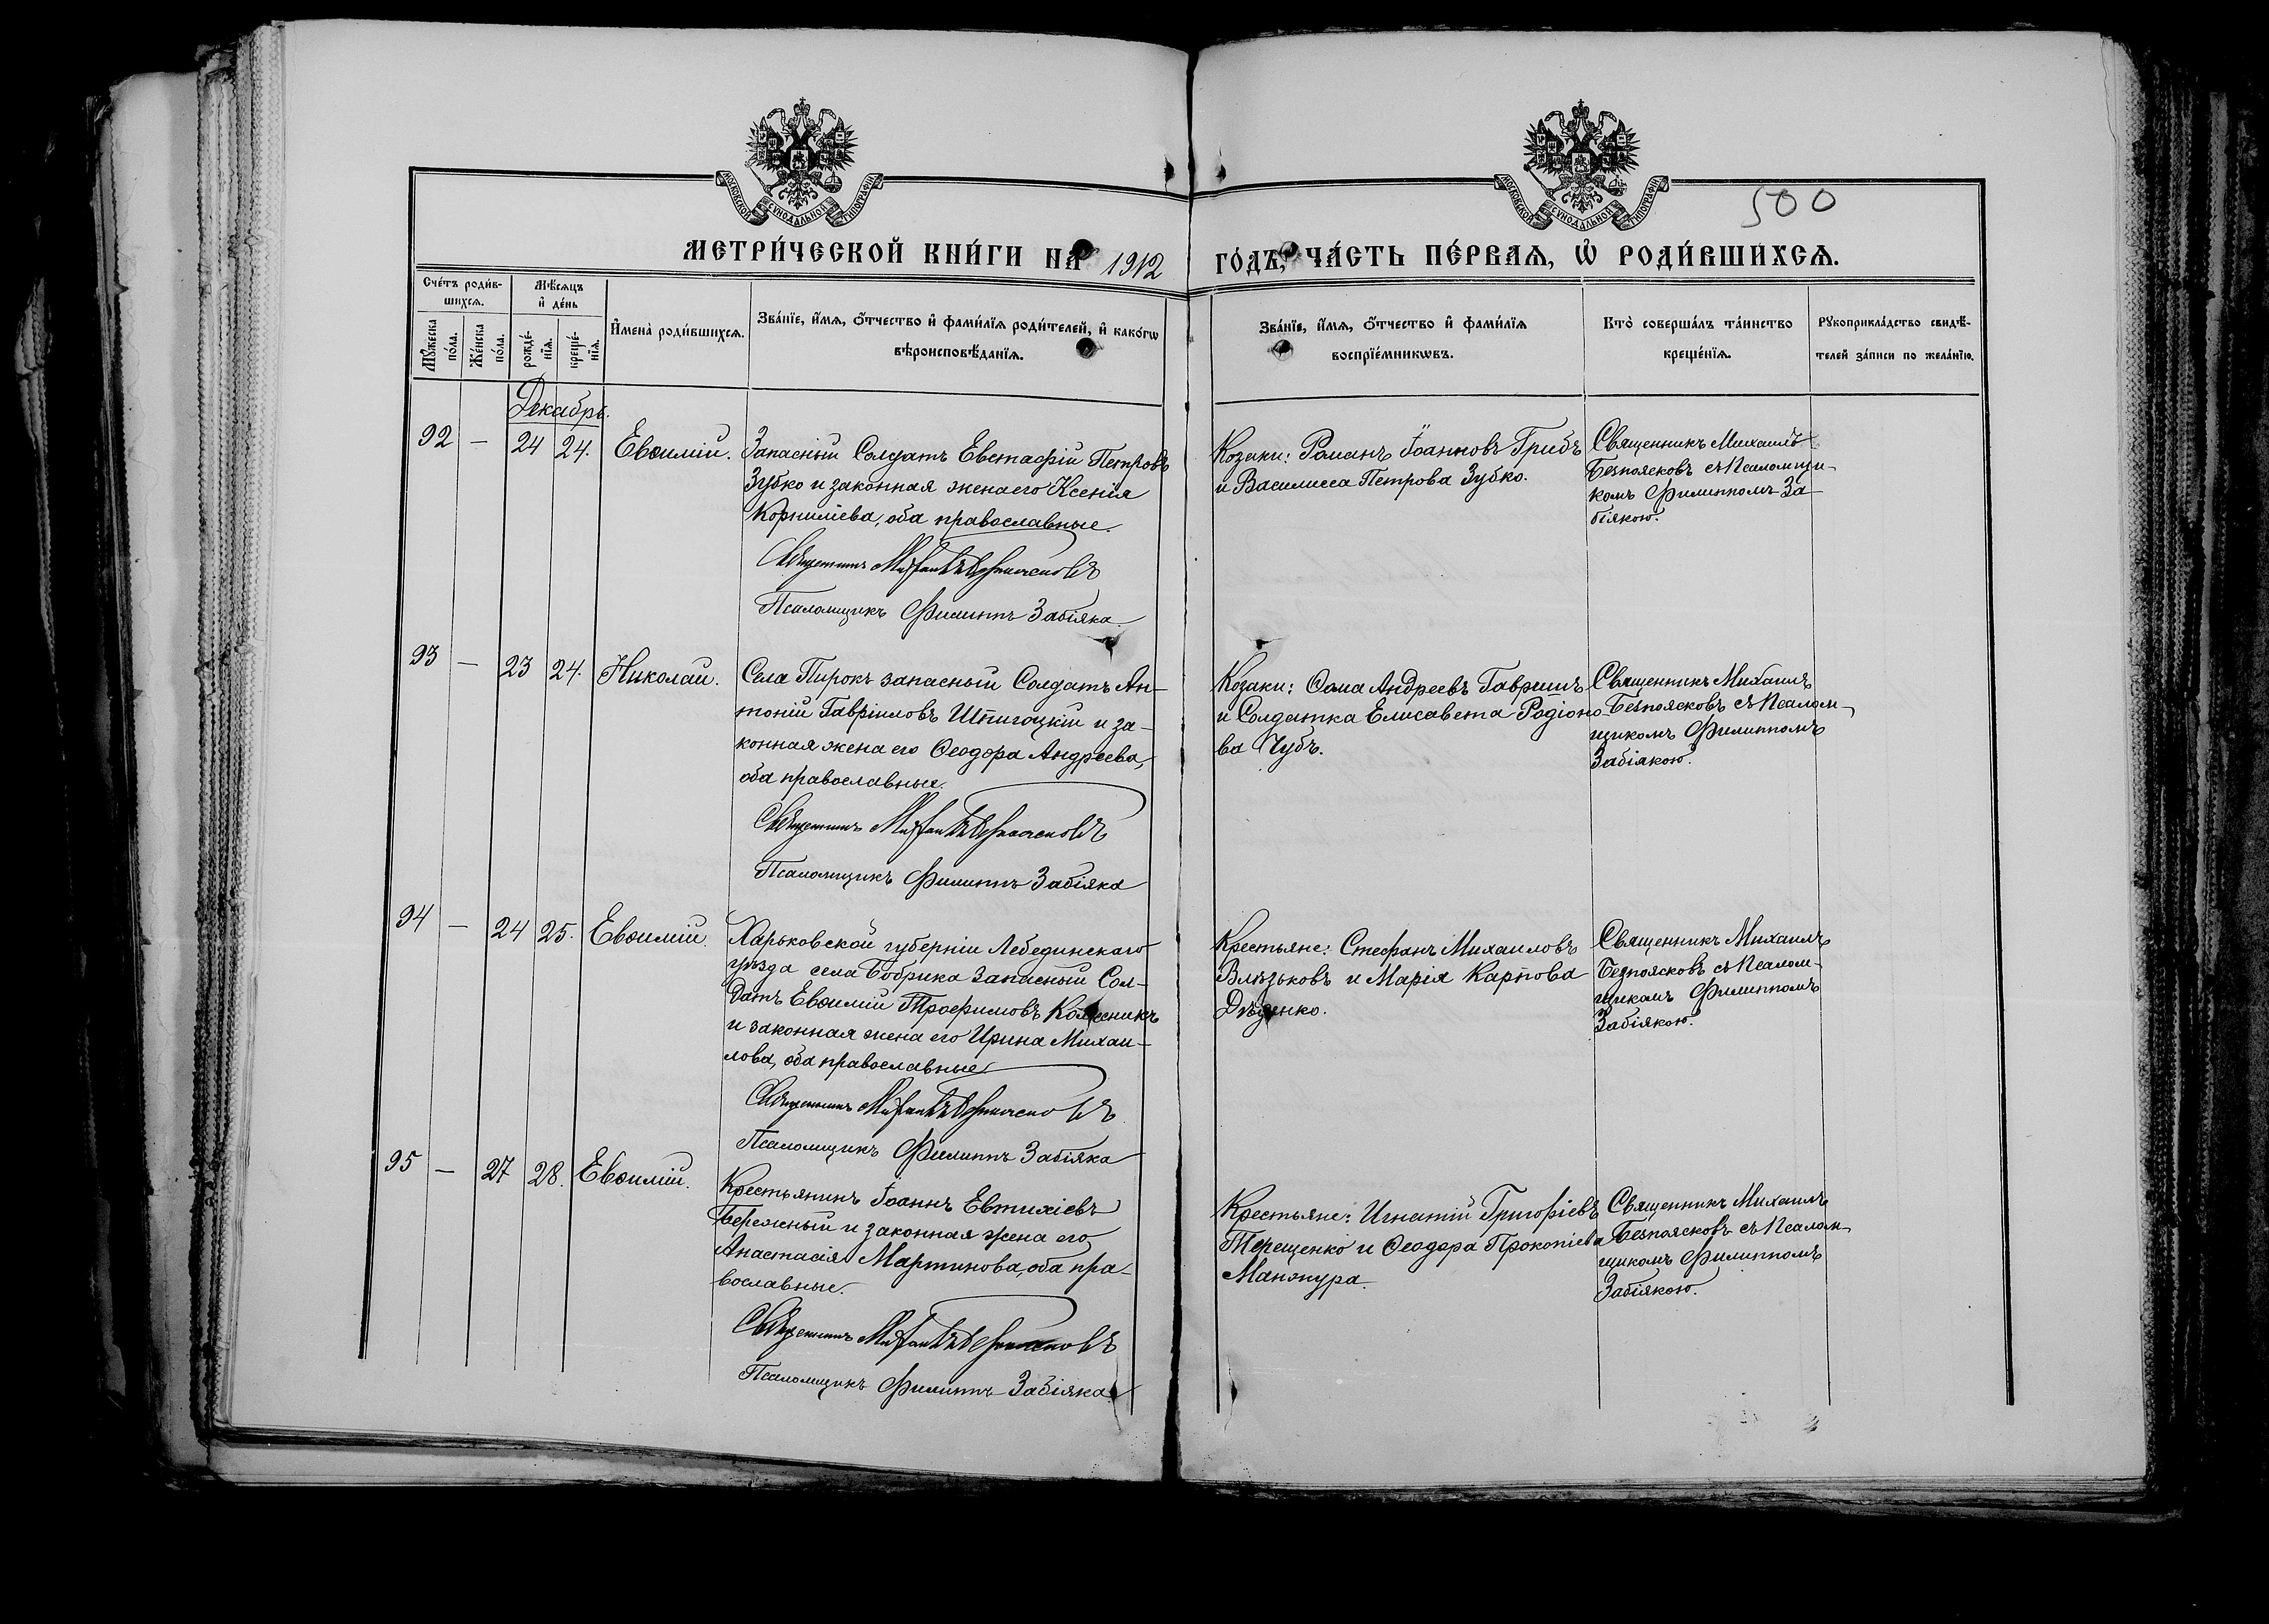 МОСКОВСКОЙ СѴНОДАЛЬНОЙ ТИПОГРАФІИ
МОСКОВСКОЙ СѴНОДАЛЬНОЙ ТИПОГРАФІИ
500
МЕТРИ́ЧЕСКОЙ КНИ́ГИ НА 1912
ГО́ДЪ, ЧА́СТЬ ПЕ́РВАѦ, Ѡ҆ РОДИ́ВШИХСѦ.
Сче́тъ роди́в-
шихсѧ.
Мꙋ́жеска по́ла.
Же́нска по́ла.
Мѣ́сѧцъ
и҆ де́нь
рожде́-
нїѧ.
креще́-
нїѧ.
И҆мена̀ роди́вшихсѧ.
Зва́нїе, и҆́мѧ, ѻ҆́тчество и҆ фами́лїѧ роди́телей, и҆ како́гѡ
вѣроисповѣ́данїѧ.
Зва́нїе, и҆́мѧ, ѻ҆́тчество и҆ фами́лїѧ
воспрїе́мникѡвъ.
Кто̀ соверша́лъ та́инство
креще́нїѧ.
Рꙋкоприкла́дство свидѣ́-
телей за́писи по жела́нїю.
Декабрь.
92 — 24 24. Евѳимій.
Запасный Солдатъ Евстафій Петровъ
Зубко и законная жена его Ксенія
Корниліева, оба православные.
Священникъ Михаилъ Безпоясковъ
Псаломщикъ Филиппъ Забіяка
Козаки: Романъ Іоанновъ Грибъ
и Василисса Петрова Зубко.
Священникъ Михаилъ
Безпоясковъ съ Псаломщи-
комъ Филиппомъ За-
біякою.
93 — 23 24. Николай.
Села Пирокъ запасный Солдатъ Ан-
тоній Гавріиловъ Шпигоцкій и за-
конная жена его Ѳеодора Андреева,
оба православные.
Священникъ Михаилъ Безпоясковъ
Псаломщикъ Филиппъ Забіяка
Козаки: Ѳома Андреевъ Гавришъ
и Солдатка Елисавета Родіоно-
ва Чубъ.
Священникъ Михаилъ
Безпоясковъ съ Псалом-
щикомъ Филиппомъ
Забіякою.
94 — 24 25. Евѳимій.
Харьковской губерніи Лебединскаго
уѣзда села Бобрика Запасный Сол-
датъ Евѳимій Трофимовъ Колесникъ
и законная жена его Ирина Михаи-
лова, оба православные.
Священникъ Михаилъ Безпоясковъ
Псаломщикъ Филиппъ Забіяка
Крестьяне: Стефанъ Михаиловъ
Влѣзьковъ и Марія Карпова
Дѣденко.
Священникъ Михаилъ
Безпоясковъ съ Псалом-
щикомъ Филиппомъ
Забіякою.
95 — 27 28. Евѳимій.
Крестьянинъ Іоаннъ Евтихіевъ
Бережный и законная жена его
Анастасія Мартинова, оба пра-
вославные.
Священникъ Михаилъ Безпоясковъ
Псаломщикъ Филиппъ Забіяка
Крестьяне: Игнатій Григоріевъ
Терещенко и Ѳеодора Прокопіева
Манжура.
Священникъ Михаилъ
Безпоясковъ съ Псалом-
щикомъ Филиппомъ
Забіякою.